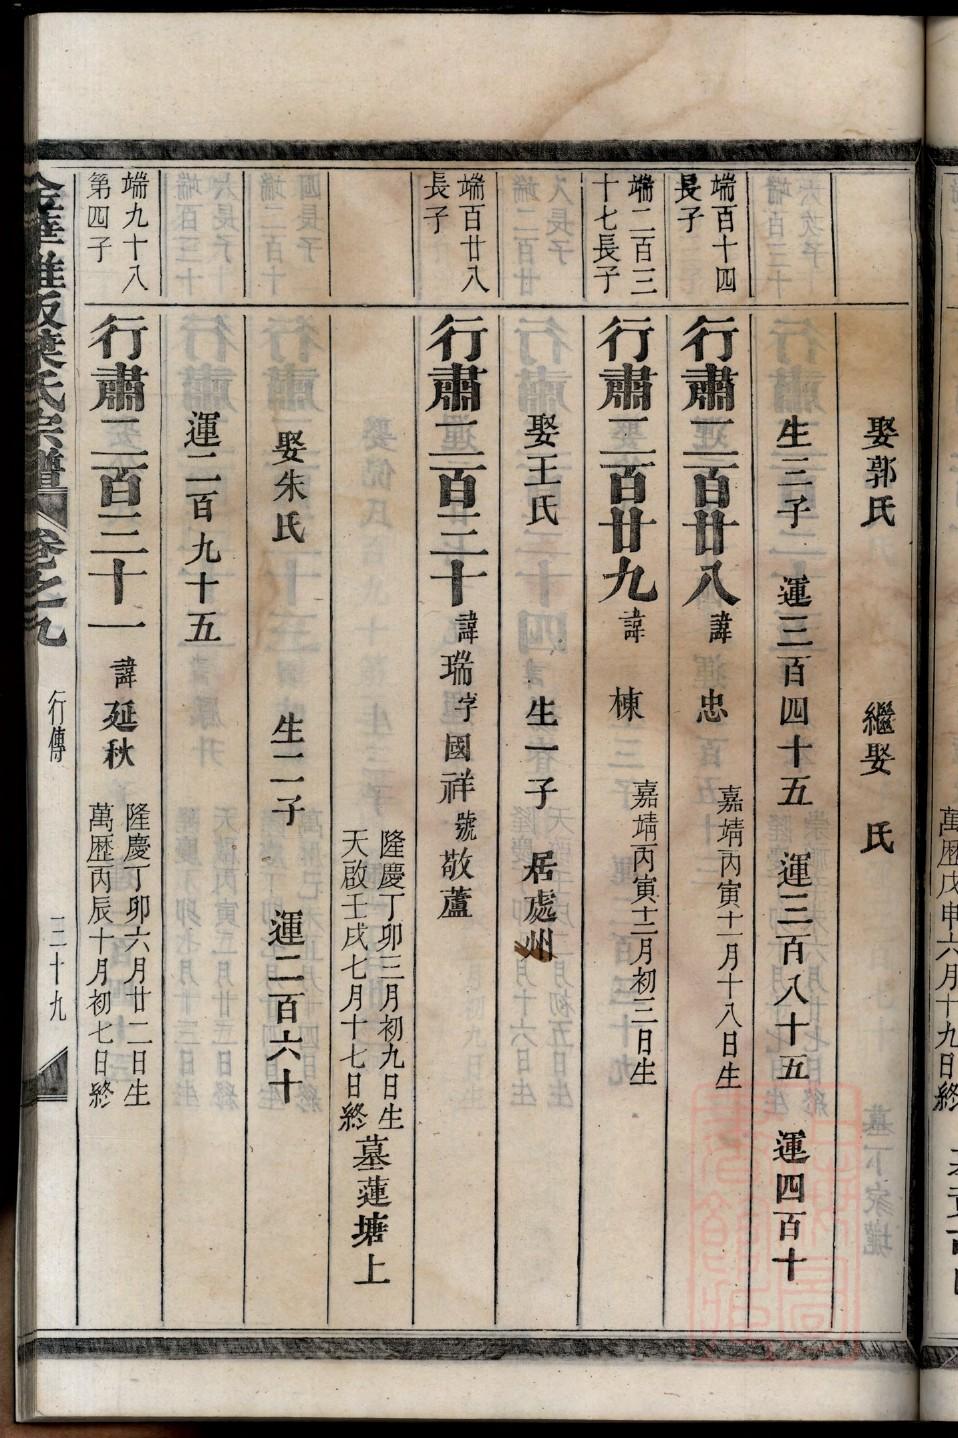 娶郭氏 繼娶 氏
生三子 運三百四十五 運三百八十五 運四百十
端百十四長子
行肅二百廿八 諱忠 嘉靖丙寅十一月十八日生
端二百三十七長子
行肅二百廿九 諱棟 嘉靖丙寅十二月初三日生
娶王氏 生一子 居處州
端百廿八長子
行肅二百三十 諱瑞字國祥號敬蘆
隆慶丁卯三月初九日生
天啟壬戌七月十七日終
墓蓮塘上
娶朱氏 生二子 運二百六十
運二百九十五
端九十八第四子
行肅二百三十一 諱延秋
隆慶丁卯六月廿二日生
萬歷丙辰十月初七日終
葉氏宗譜 卷之九 行傳 三十九
萬歷戊申六月十九日終